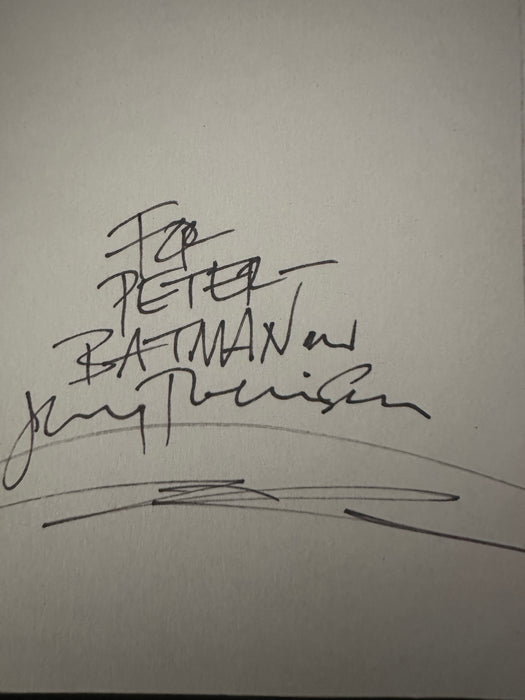 FOR
PETER-
BATMAN and
Jerry Robinson